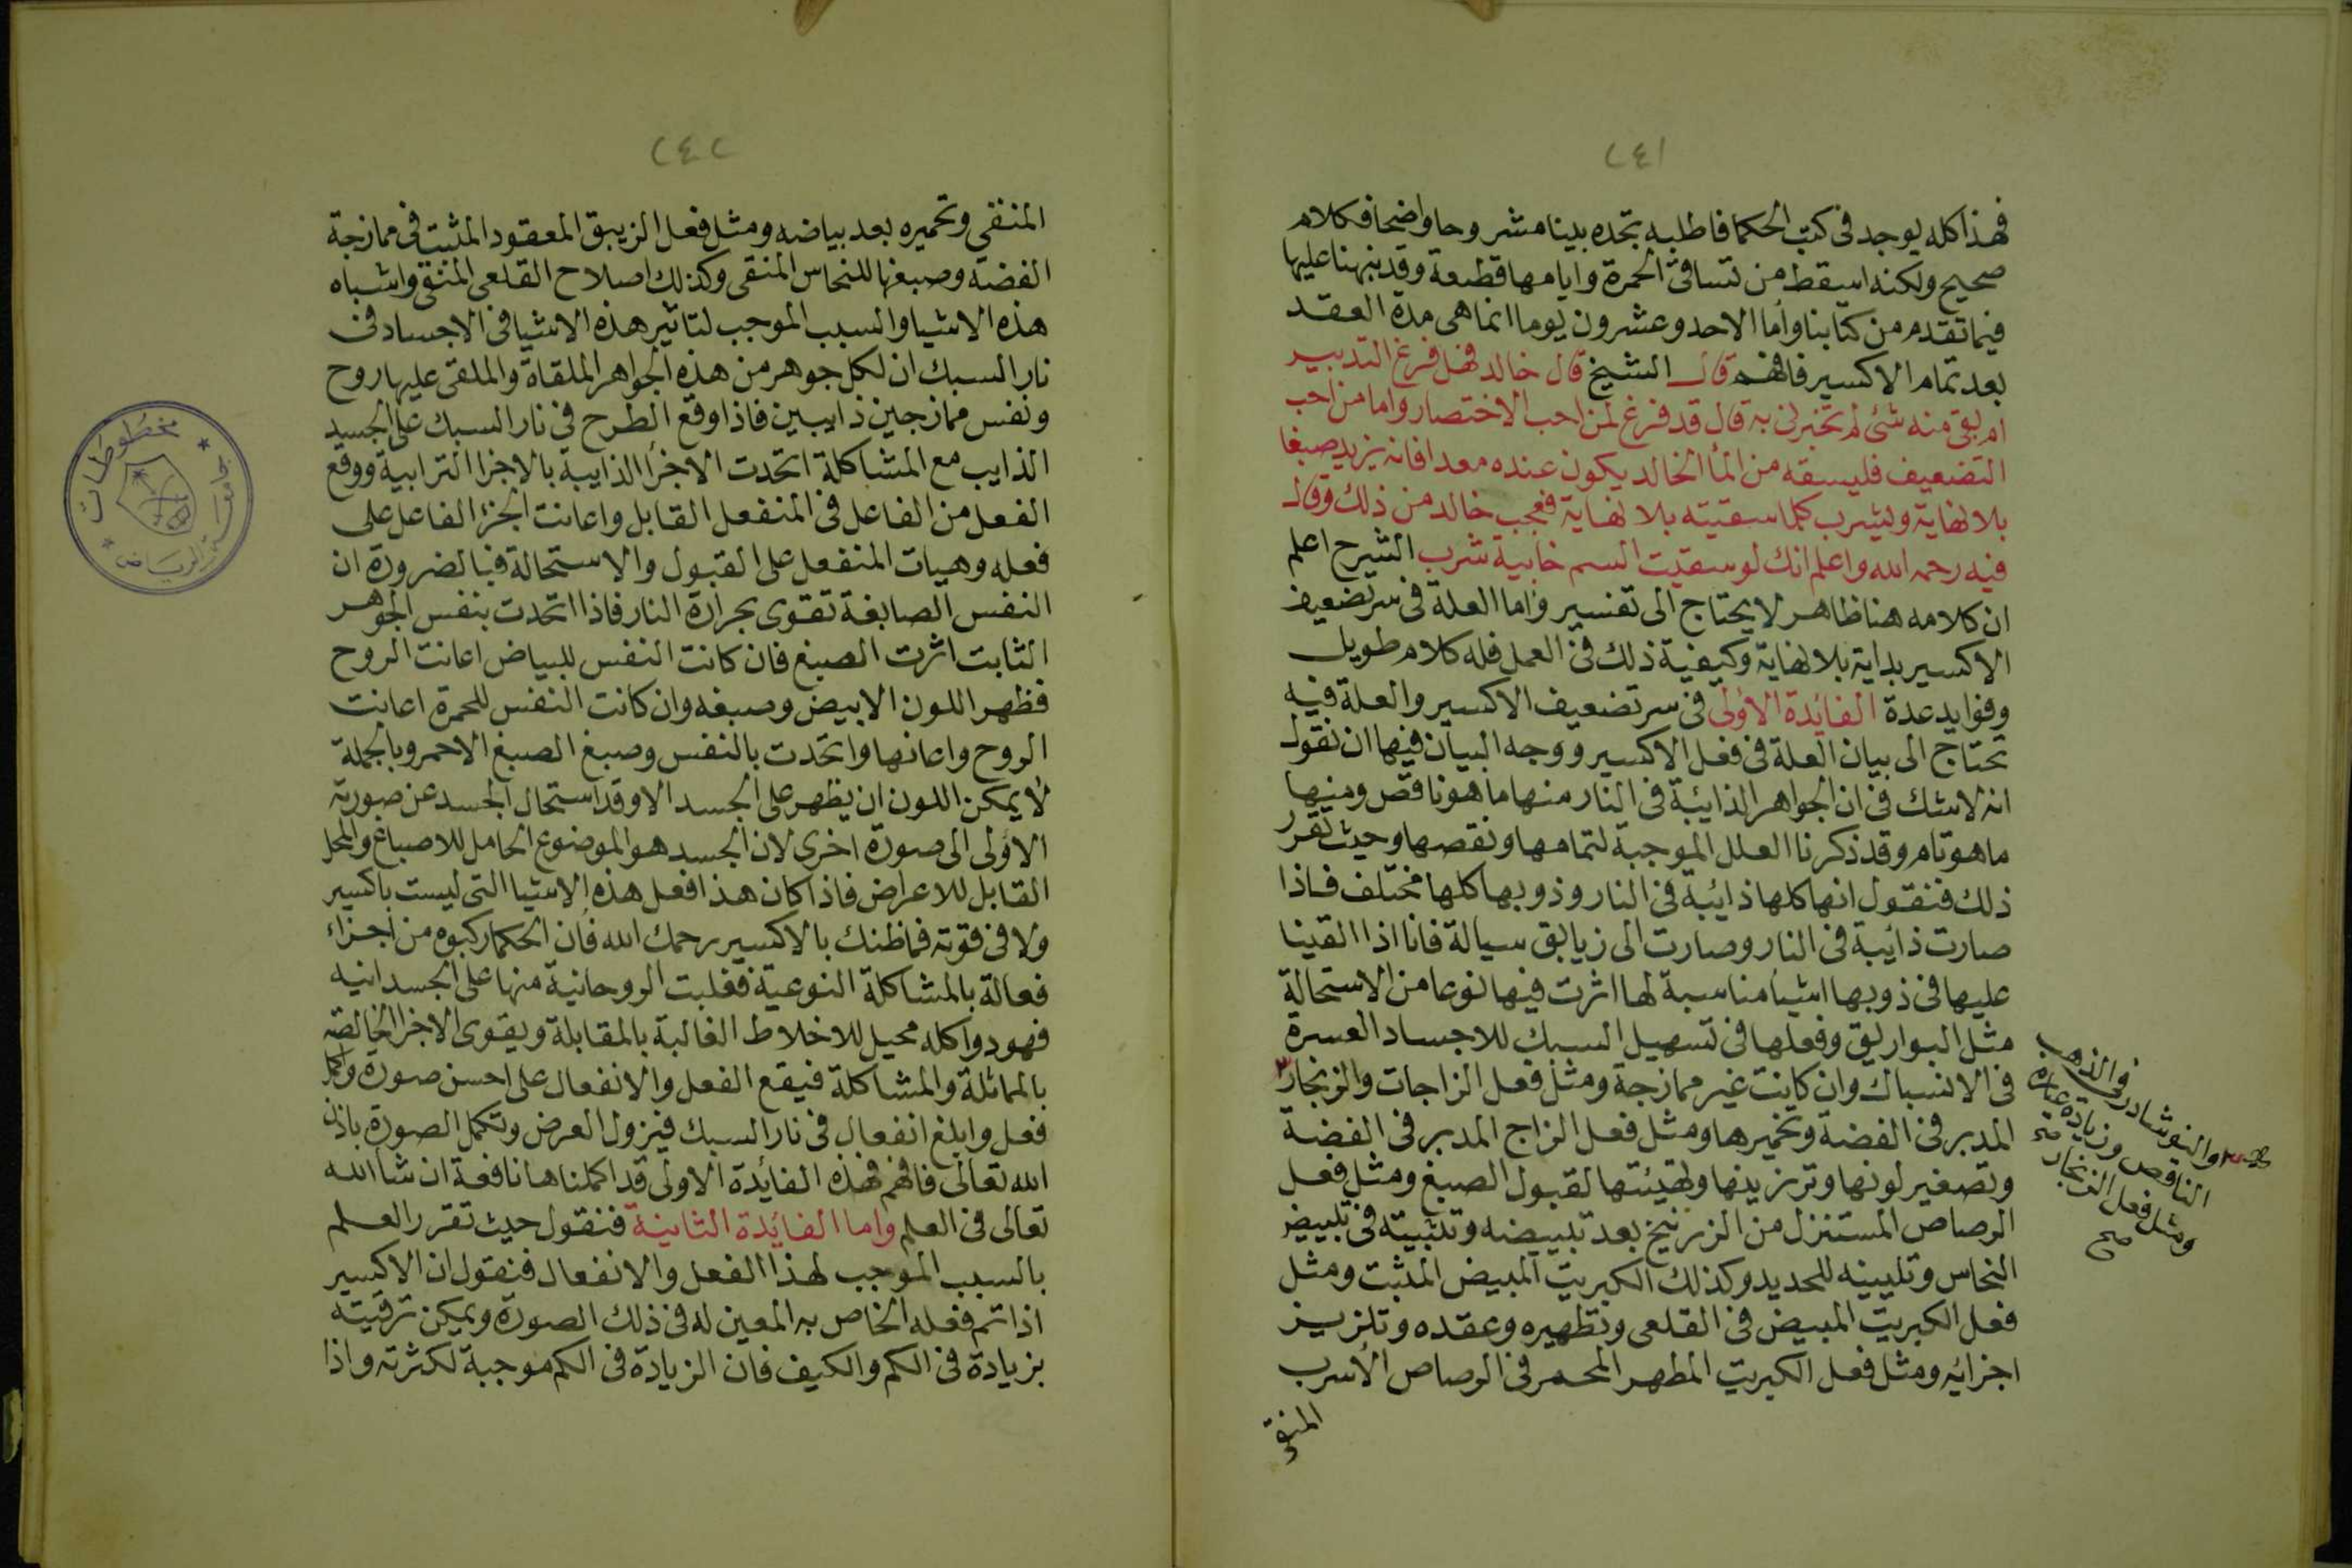 ٢٤١
فهذا كله يوجد فى كتب الحكما فاطلبه تجده بينا مشروحا واضحا فكلام
صحيح ولكنه اسقط من تساقى الحمرة وايامها قطعة وقد نبهنا عليها
فيما تقدم من كتابنا واما الاحد وعشرون يوما انما هى مدة العقد
بعد تمام الاكسير فافهم قال الشيخ قال خالد فهل فرغ التدبير
ام بقى منه شئ لم تخبرنى به قال قد فرغ لمن احب الاختصار واما من احب
التضعيف فليسقه من الما الخالد يكون عنده معدا فانه يزيد صبغا
بلا نهاية ويشرب كلما سقيته بلا نهاية فعجب خالد من ذلك وقال
فيه رحمه الله واعلم انك لو سقيت السم خابية شرب الشرح اعلم
ان كلامه هنا ظاهر لا يحتاج الى تفسير واما العلة فى سر تضعيف
الاكسير بداية بلا نهاية وكيفية ذلك فى العمل فله كلام طويل
وفوايد عدة الفائدة الاولى فى سر تضعيف الاكسير والعلة فيه
تحتاج الى بيان العلة فى فعل الاكسير ووجه البيان فيها ان نقول
انه لا شك فى ان الجواهر الذائبة فى النار منها ما هو ناقص ومنها
ما هو تام وقد ذكرنا العلل الموجبة لتمامها ونقصها وحيث تقرر
ذلك فنقول انها كلها ذائبة فى النار وذوبها كلها مختلف فاذا
صارت ذائبة فى النار وصارت الى زيابق سيالة فانا اذا القينا
عليها فى ذوبها اشيا مناسبة لها اثرت فيها نوعا من الاستحالة
مثل البواريق وفعلها فى تسهيل السبك للاجساد العسرة
فى الانسباك وان كانت غير ممازجة ومثل فعل الزاجات والزنجار ٣
المدبر فى الفضة وتخميرها ومثل فعل الزاج المدبر فى الفضة
وتصغير لونها وترزينها وتهيئتها لقبول الصبغ ومثل فعل
الرصاص المستنزل من الزرنيخ بعد تبييضه وتثبيته فى تبييض
النحاس وتليينه للحديد وكذلك الكبريت المبيض المثبت ومثل
فعل الكبريت المبيض فى القلعى وتطهيره وعقده وتلزيز
اجزائه ومثل فعل الكبريت المطهر المحمر فى الرصاص الأسرب
المنقى
والنوشادر فى الذهب
الناقص وزيادة عياره
ومثل فعل الزنجار
صح
٢٤٢
المنقى وتحميره بعد بياضه ومثل فعل الزيبق المعقود المثبت فى ممازجة
الفضة وصبغها للنحاس المنقى وكذلك اصلاح القلعى المنقى واشباه
هذه الاشيا والسبب الموجب لتاثير هذه الاشيا فى الاجساد فى
نار السبك ان لكل جوهر من هذه الجواهر الملقاة والملقى عليها روح
ونفس ممازجين ذايبين فاذا وقع الطرح فى نار السبك على الجسد
الذايب مع المشاكلة اتحدت الاجزا الذايبة بالاجزا الترابية ووقع
الفعل من الفاعل فى المنفعل القابل واعانت الجزا الفاعل على
فعله وهيات المنفعل على القبول والاستحالة فبالضرورة ان
النفس الصابغة تقوى بحرارة النار فاذا اتحدت بنفس الجوهر
الثابت اثرت الصبغ فان كانت النفس للبياض اعانت الروح
فظهر اللون الابيض وصبغه وان كانت النفس للحمرة اعانت
الروح واعانها واتحدت بالنفس وصبغ الصبغ الاحمر وبالجملة
لا يمكن اللون ان يظهر على الجسد الا وقد استحال الجسد عن صورته
الاولى الى صورة اخرى لان الجسد هو الموضوع الحامل للاصباغ والمحل
القابل للاعراض فاذا كان هذا فعل هذه الاشيا التى ليست باكسير
ولا فى قوته فما ظنك بالاكسير رحمك الله فان الحكما ركبوه من اجزاء
فعالة بالمشاكلة النوعية فغلبت الروحانية منها على الجسدانيه
فهو دوا كله محيل للاخلاط الغالبة بالمقابلة ويقوى الاجزا الخالصة
بالمماثلة والمشاكلة فيقع الفعل والانفعال على احسن صورة واكمل
فعل وابلغ انفعال فى نار السبك فيزول العرض وتكمل الصورة باذن
الله تعالى فافهم فهذه الفائدة الاولى قد اكملناها نافعة ان شا الله
تعالى فى العلم واما الفائدة الثانية فنقول حيث تقرر العلم
بالسبب الموجب لهذا الفعل والانفعال فنقول ان الاكسير
اذا تم ففعله الخاص به المعين له فى ذلك الصورة ويمكن ترقيته
بزيادة فى الكم والكيف فان الزيادة فى الكم موجبة لكثرته واذا
مخطوطات
جامعة الرياض